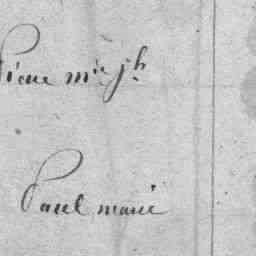 Pierre mie jh
Paul marie